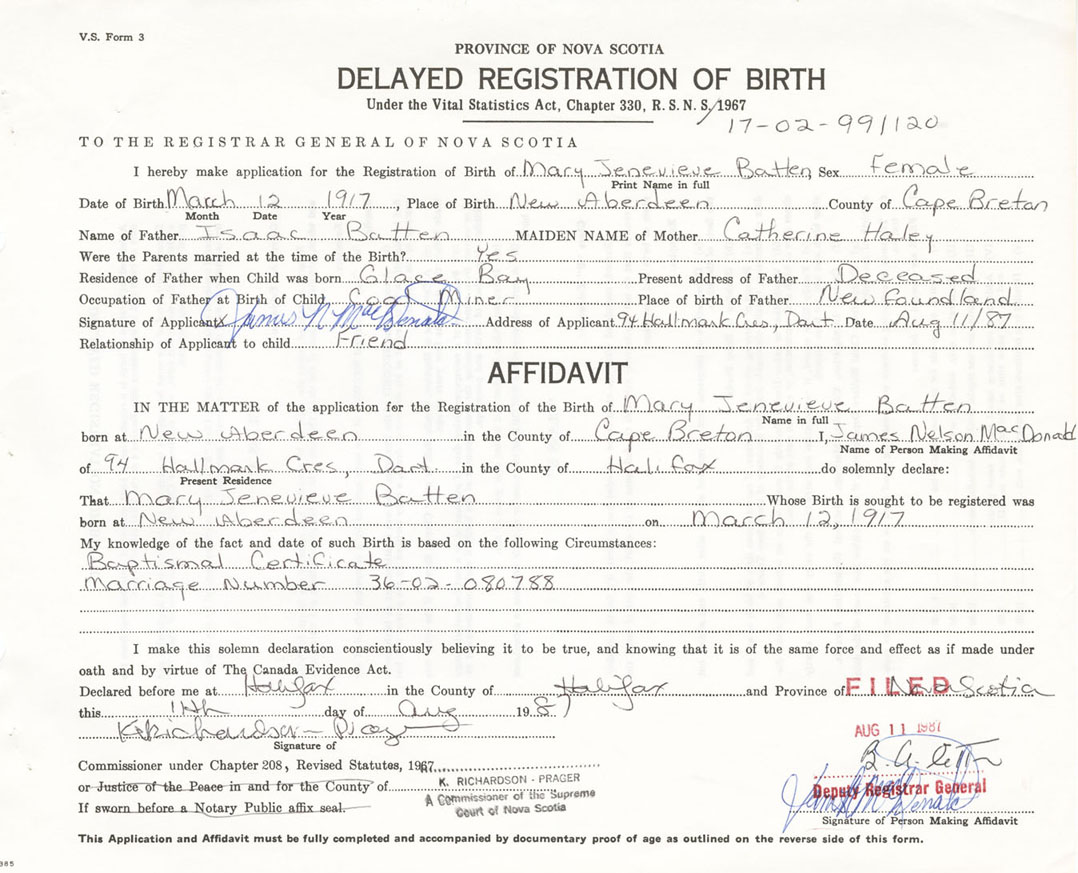 V.S. Form 3
PROVINCE OF NOVA SCOTIA
DELAYED REGISTRATION OF BIRTH
Under the Vital Statistics Act, Chapter 330, R.S.N.S. 1967
17-02-99/120
TO THE REGISTRAR GENERAL OF NOVA SCOTIA
I hereby make application for the Registration of Birth of Mary Jenevieve Batten, Sex Female
Print Name in full
Date of Birth March 12 1917, Place of Birth New Aberdeen County of Cape Breton
Month Date Year
Name of Father Isaac Batten MAIDEN NAME of Mother Catherine Haley
Were the Parents married at the time of the Birth? Yes
Residence of Father when Child was born Glace Bay Present address of Father Deceased
Occupation of Father at Birth of Child Coal Miner Place of birth of Father Newfoundland
Signature of Applicant x James N MacDonald Address of Applicant 94 Hallmark Cres, Dart Date Aug 11/87
Relationship of Applicant to child Friend
AFFIDAVIT
IN THE MATTER of the application for the Registration of the Birth of Mary Jenevieve Batten
Name in full
born at New Aberdeen in the County of Cape Breton I, James Nelson MacDonald
Name of Person Making Affidavit
of 94 Hallmark Cres, Dart. in the County of Halifax do solemnly declare:
Present Residence
That Mary Jenevieve Batten Whose Birth is sought to be registered was
born at New Aberdeen on March 12, 1917
My knowledge of the fact and date of such Birth is based on the following Circumstances:
Baptismal Certificate
Marriage Number 36-02-080788
I make this solemn declaration conscientiously believing it to be true, and knowing that it is of the same force and effect as if made under
oath and by virtue of The Canada Evidence Act.
Declared before me at Halifax in the County of Halifax and Province of Nova Scotia
FILED
this 11th day of Aug 1987
AUG 11 1987
K Richardson-Prager
Signature of
Commissioner under Chapter 208, Revised Statutes, 1967
or Justice of the Peace in and for the County of
K. RICHARDSON - PRAGER
A Commissioner of the Supreme
Court of Nova Scotia
If sworn before a Notary Public affix seal.
Deputy Registrar General
James N MacDonald
Signature of Person Making Affidavit
This Application and Affidavit must be fully completed and accompanied by documentary proof of age as outlined on the reverse side of this form.
385